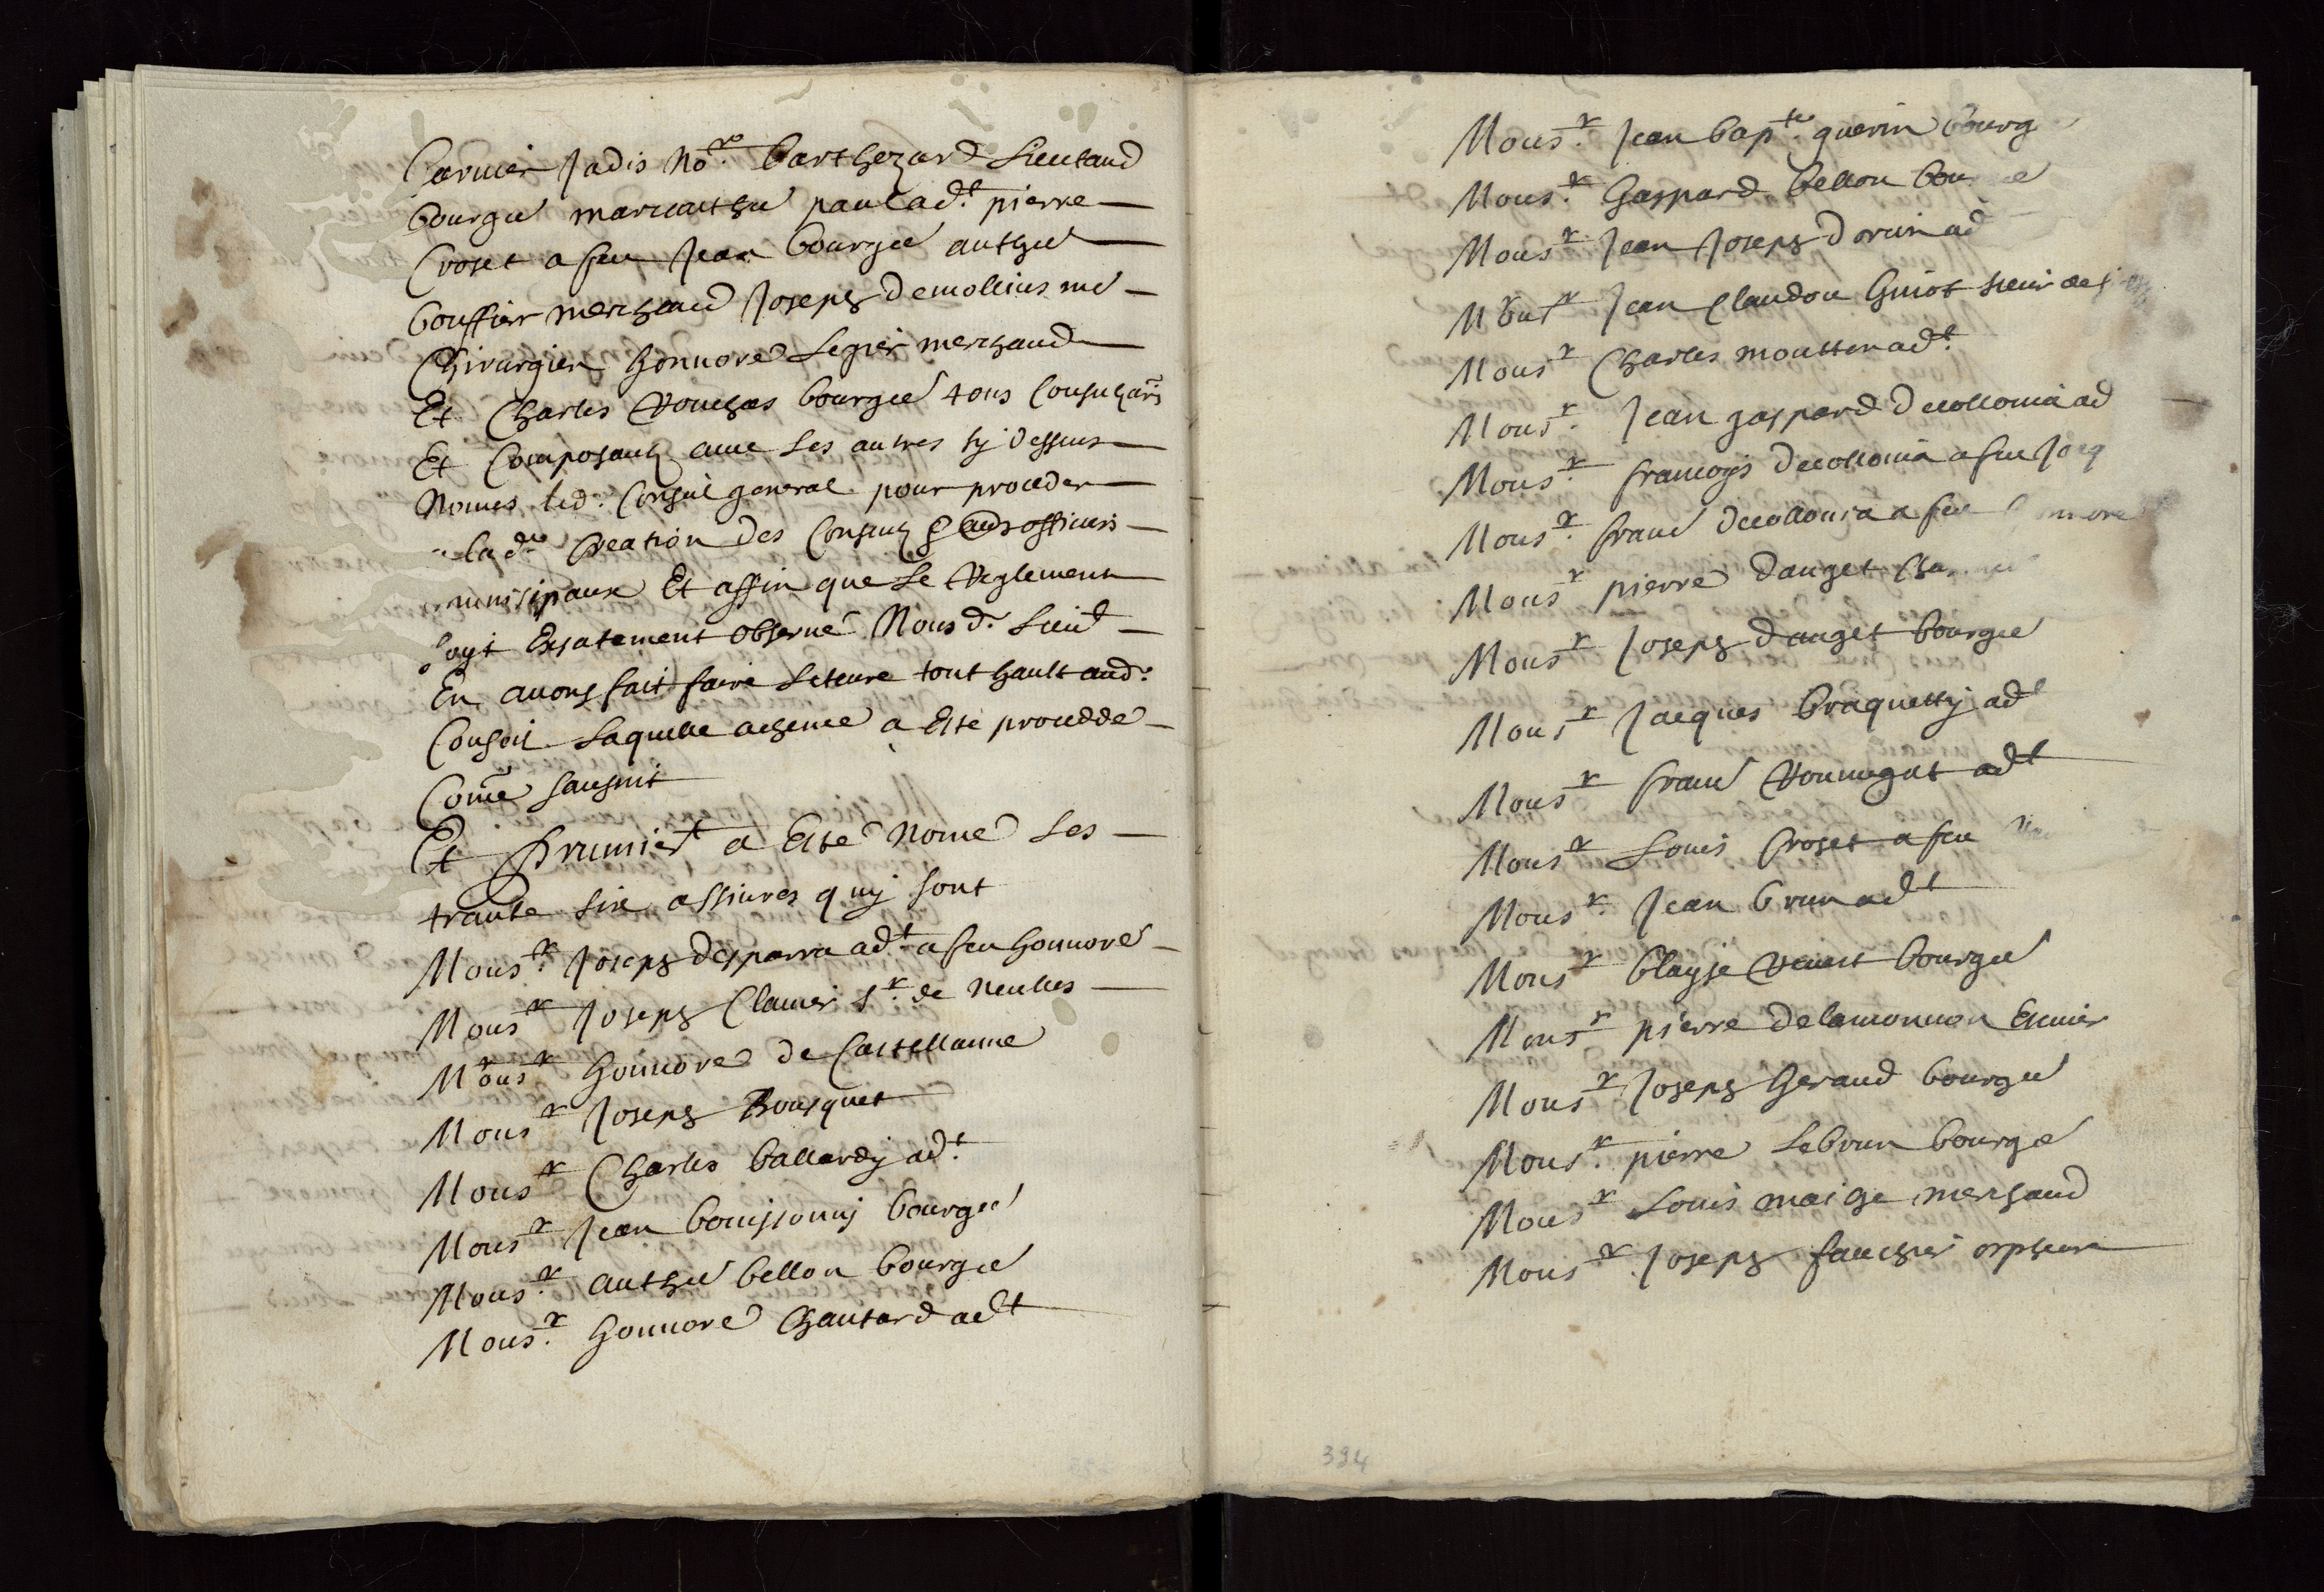 Carnier Jadis No.re barthezard Lieutaud
bourgie marc anthe paul ad.t pierre
Croset a feu Jean bourgie anthe
bouffier merchand Joseph demollins me
Chirurgien honnore Legier merchand
Et Charles bourgie tous
Et Composantz avec Les autres sy dessus
Nomes led. Conseil general pour proceder
a lad.e Creation des Consulz & officiers
munissipaux Et affin que Le Reglement
soyt Exsatement observe Nous d. Lieut
En avons fait faire Leteure tout hault aud.
Conseil Laquelle achevee a Este procedde
Come sansuit
Et premier a Este Nome Les
trante six quy sont
Mous.r Joseph desparra ad.t a feu honnore
Mous.r Joseph Clavier s.r de neulles
Mous.r honnore de Castellanne
Mous.r Joseph Bousquet
Mous.r Charles ballardy ad.t
Mous.r Jean bouissonny bourgie
Mous.r anthe bellon bourgie
Mous.r honnore Chautard ad.t
Mous.r Jean bap.te guerin bourg
Mous.r Gaspard bellon
Mous.r Jean Joseph dorcin ad
Mous.r Jean Claudon Guiot sieur de
Mous.r Charles moutton ad.t
Mous.r Jean gaspard decollonia ad
Mous.r francoys decollonia a feu Jacq
Mous.r franc decollonia a feu
Mous.r pierre dauget
Mous.r Joseph dauget bourgie
Mous.r Jacques braquetty ad.t
Mous.r franc ad.t
Mous.r Louis Croset a feu
Mous.r Jean brun ad.t
Mous.r blayse bourgie
Mous.r pierre delamonnon Ecuier
Mous.r Joseph Geraud bourgie
Mous.r pierre Lebrun bourge
Mous.r Louis maige merchand
Mous.r Joseph fauchier orpheure
394